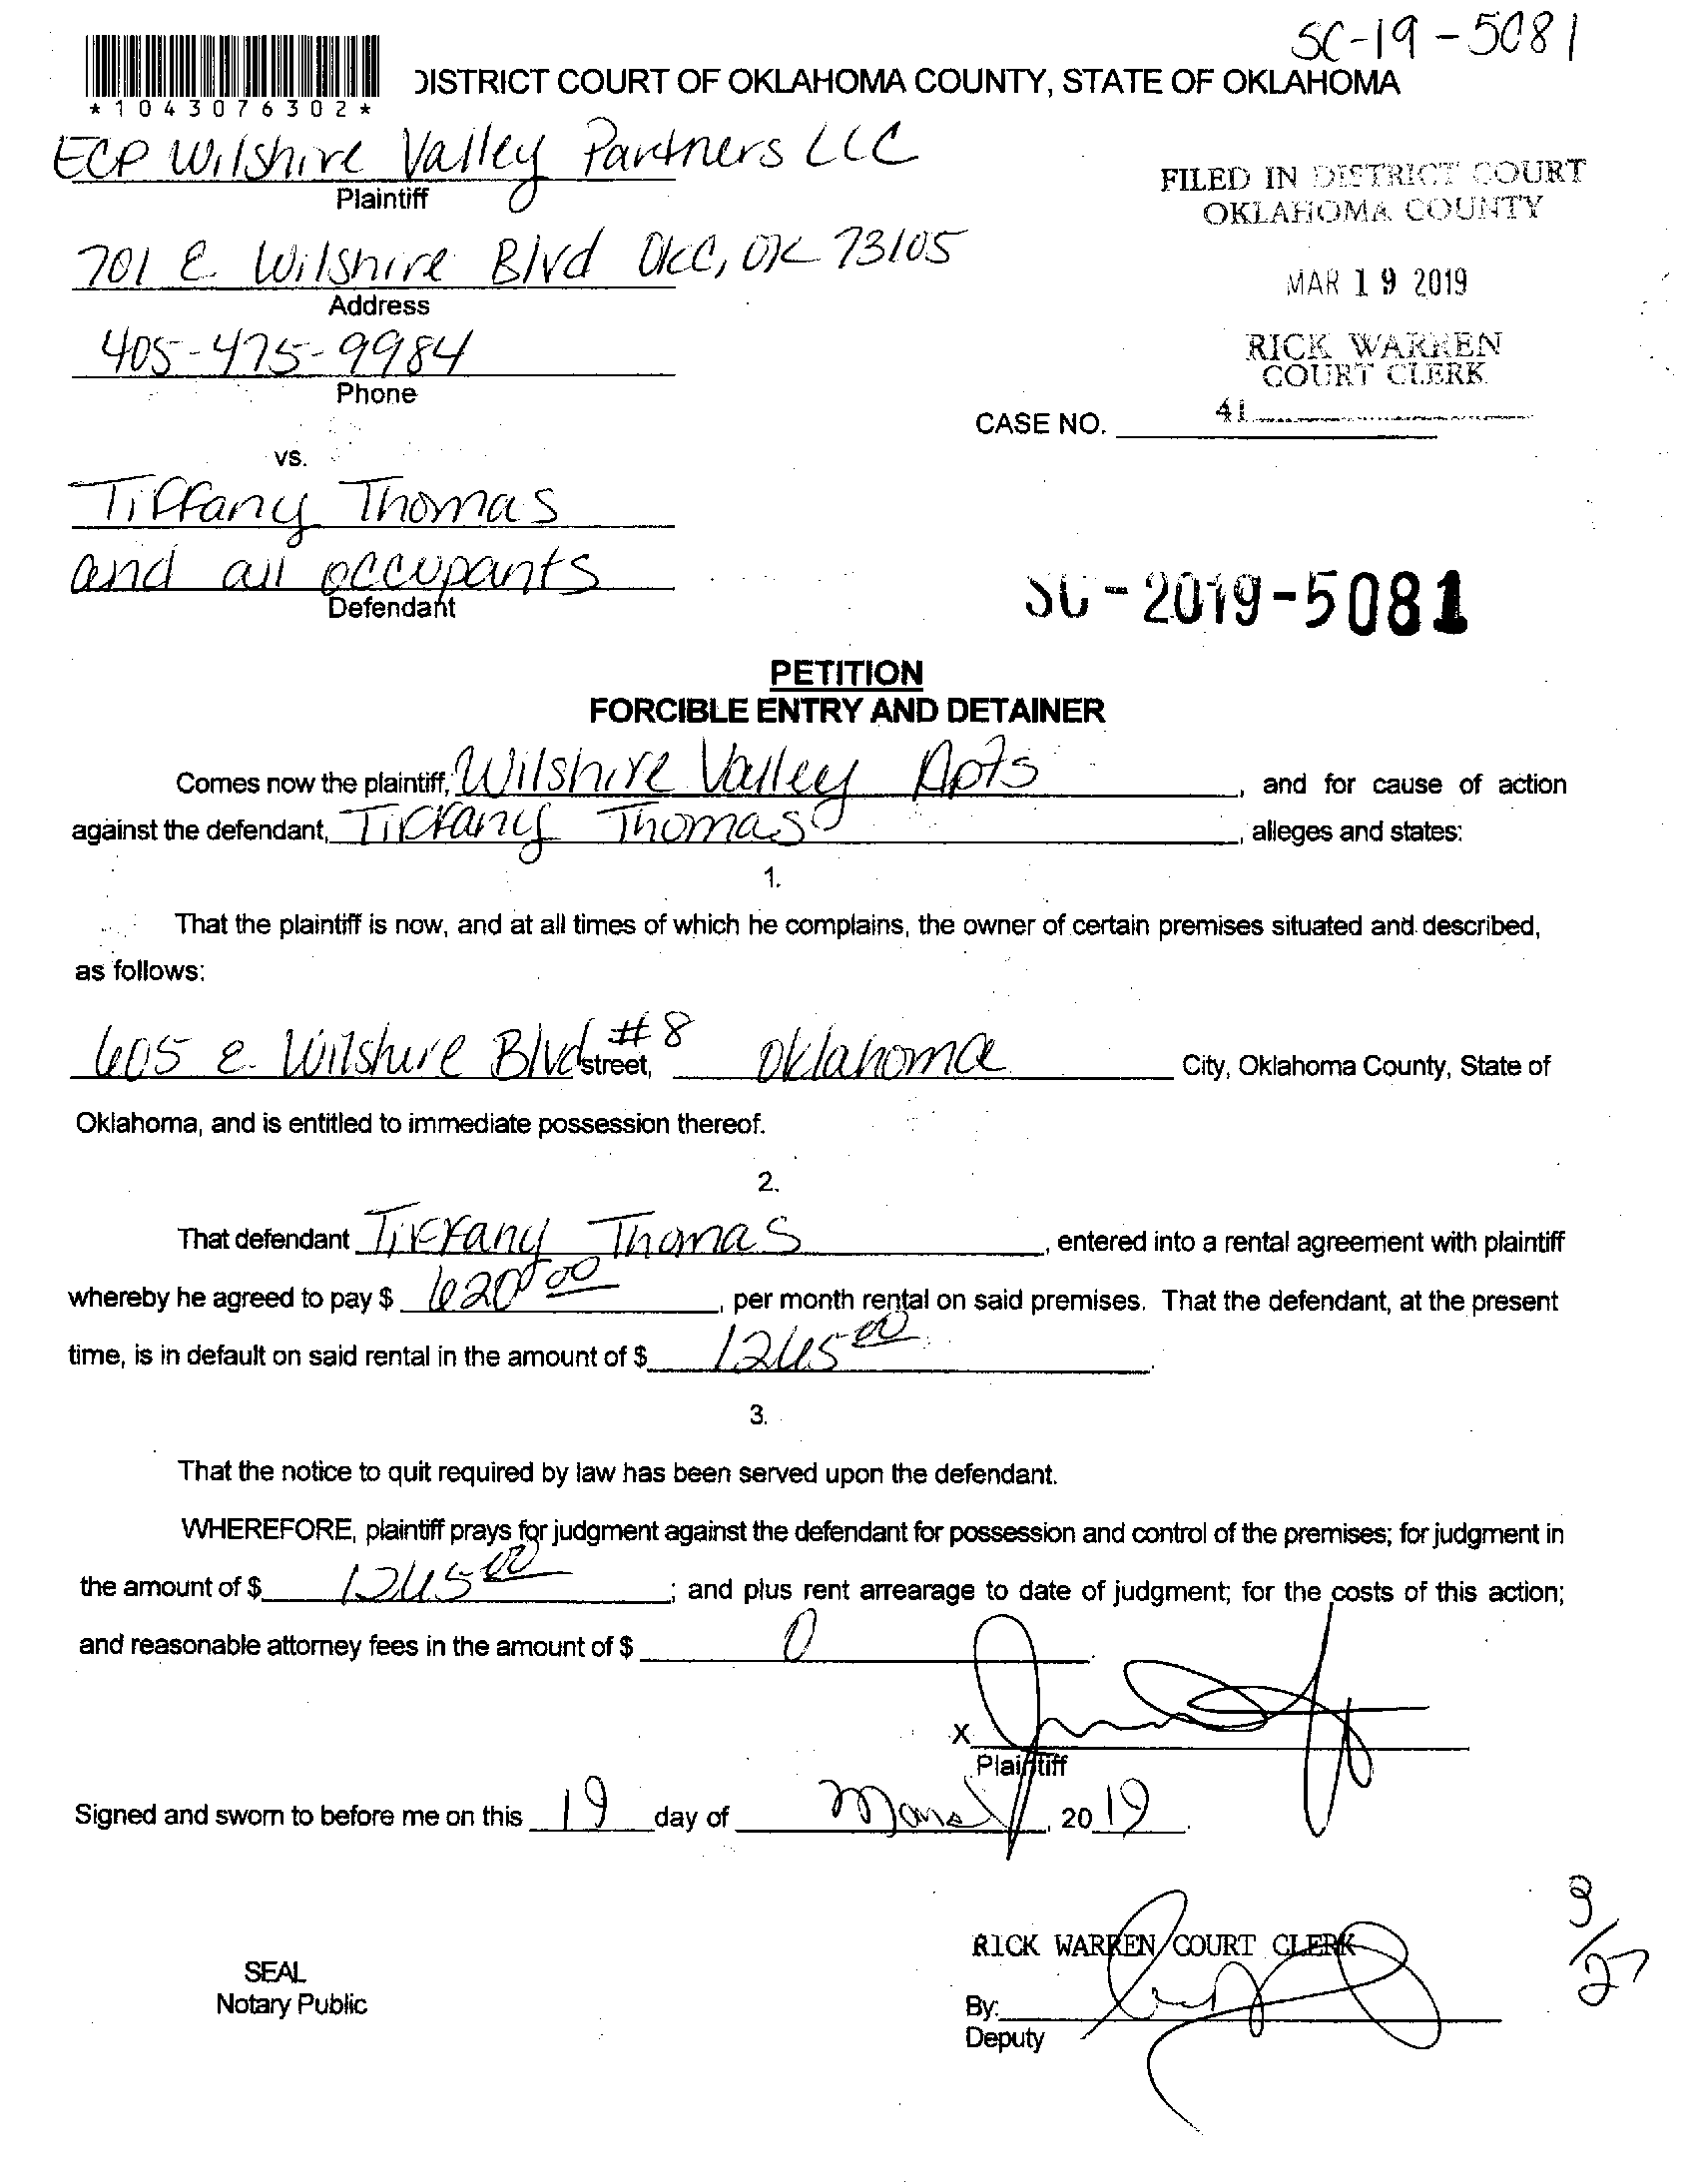 SC-19-5081
*1043076302*
DISTRICT COURT OF OKLAHOMA COUNTY, STATE OF OKLAHOMA
ECP Wilshire Valley Partners LLC
Plaintiff
FILED IN DISTRICT COURT
OKLAHOMA COUNTY
701 E. Wilshire Blvd OKC, OK 73105
Address
MAR 19 2019
405-475-9984
Phone
RICK WARREN
COURT CLERK
41
CASE NO.
vs.
Tiffany Thomas
and all occupants
Defendant
SC-2019-5081
PETITION
FORCIBLE ENTRY AND DETAINER
Comes now the plaintiff, Wilshire Valley Apts, and for cause of action
against the defendant, Tiffany Thomas, alleges and states:
1.
That the plaintiff is now, and at all times of which he complains, the owner of certain premises situated and described,
as follows:
605 E. Wilshire Blvd #8 street, Oklahoma City, Oklahoma County, State of
Oklahoma, and is entitled to immediate possession thereof.
2.
That defendant Tiffany Thomas, entered into a rental agreement with plaintiff
whereby he agreed to pay $ 620.00, per month rental on said premises. That the defendant, at the present
time, is in default on said rental in the amount of $ 1265.00.
3.
That the notice to quit required by law has been served upon the defendant.
WHEREFORE, plaintiff prays for judgment against the defendant for possession and control of the premises; for judgment in
the amount of $ 1265.00; and plus rent arrearage to date of judgment; for the costs of this action;
and reasonable attorney fees in the amount of $ 0.
X
Plaintiff
Signed and sworn to before me on this 19 day of March, 2019.
3/27
RICK WARREN COURT CLERK
SEAL
Notary Public
By:
Deputy